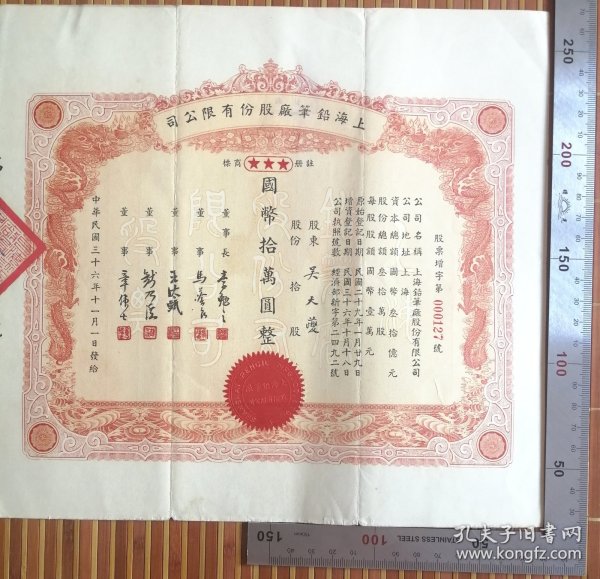 上海鉛筆廠股份有限公司
註冊
商標
股票增字第000127號
公司名稱 上海鉛筆廠股份有限公司
公司地址 上海
資本總額 國幣叁拾億元
股份總額 叁拾萬股
每股股額 國幣壹萬元
原始登記日期 民國二十九年一月廿九日
增資登記日期 民國三十六年十月十八日
公司執照號數 經濟部新字第二四九二號
股東 吳大夔
股份 拾股
國幣拾萬圓整
董事長
董事
董事
董事
董事
中華民國三十六年十一月一日發給
250
200
150
100
50
150
100
50
STAINLESS STEEL
孔夫子旧书网
www.kongfz.com